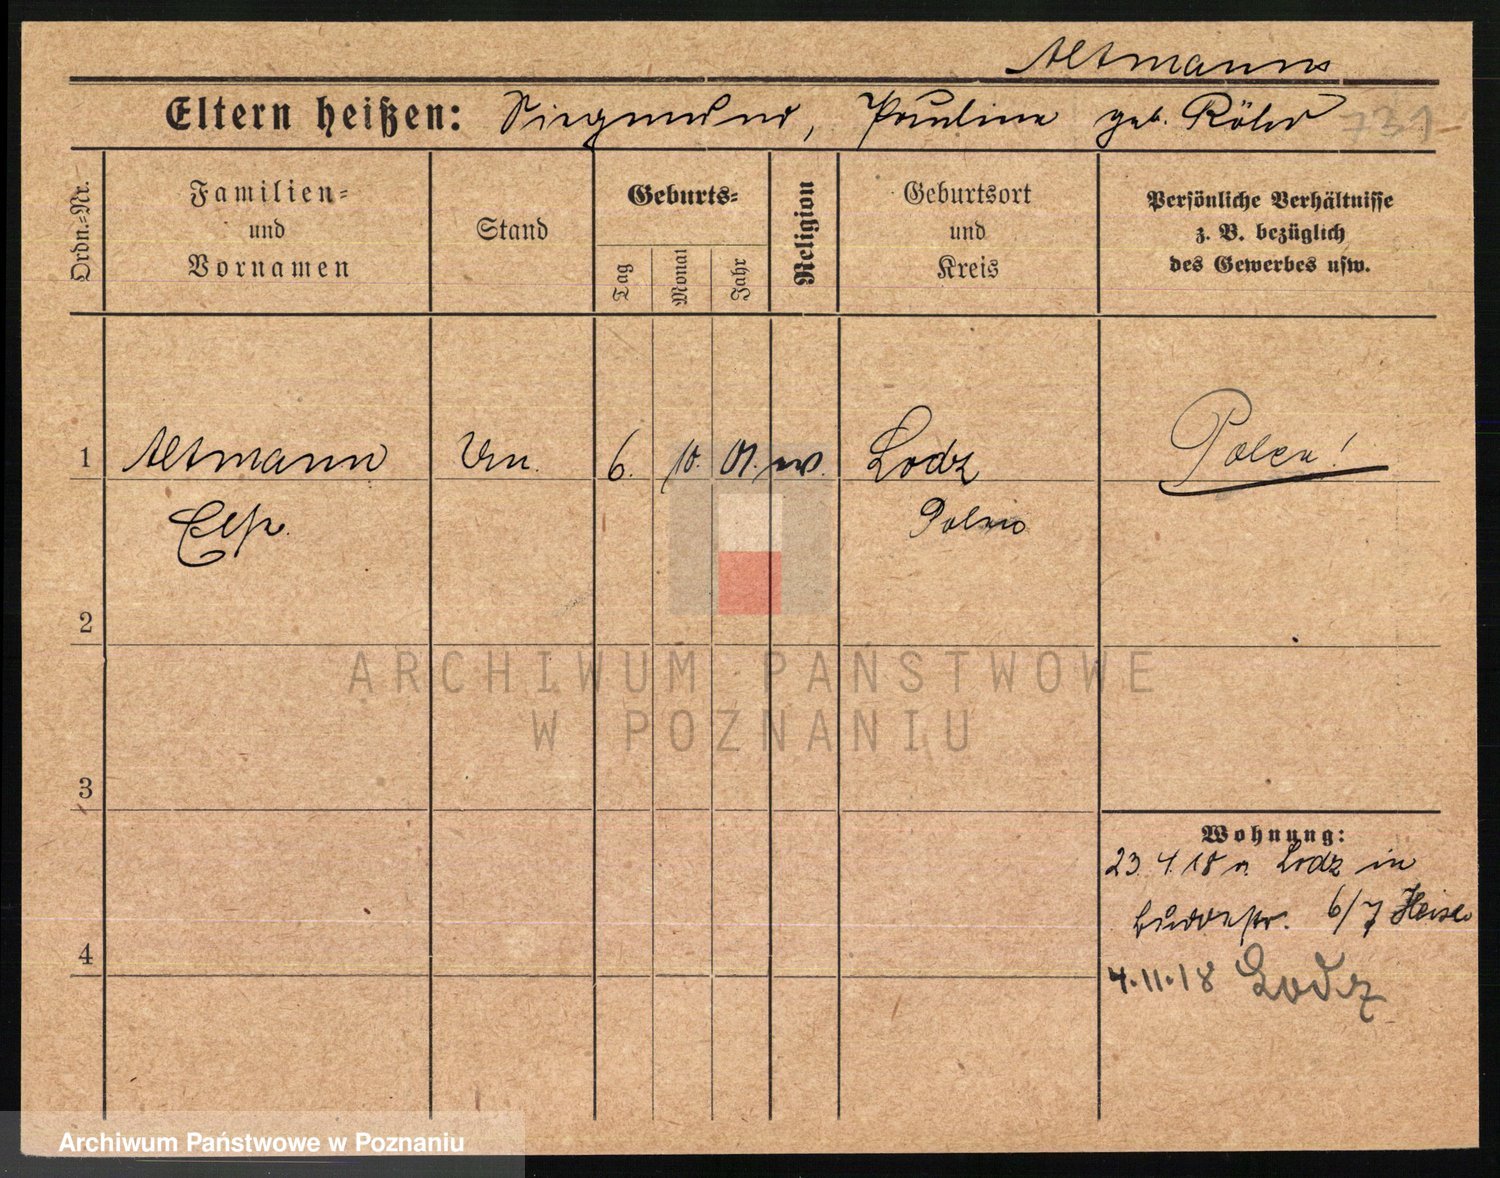 Altmann
Eltern heißen: Siegmund, Pauline geb. Röhr 731
Ordn.=Nr.
Familien=
und
Vornamen
Stand
Geburts=
Tag
Monat
Jahr
Religion
Geburtsort
und
Kreis
Persönliche Verhältnisse
z. B. bezüglich
des Gewerbes usw.
1 Altmann 6. 10. 01. ev. Lodz Polen!
Polen
2
3
4
Wohnung:
23. 4. 18 v. Lodz in
6/7
4.11.18 Lodz
ARCHIWUM PAŃSTWOWE
W POZNANIU
Archiwum Państwowe w Poznaniu